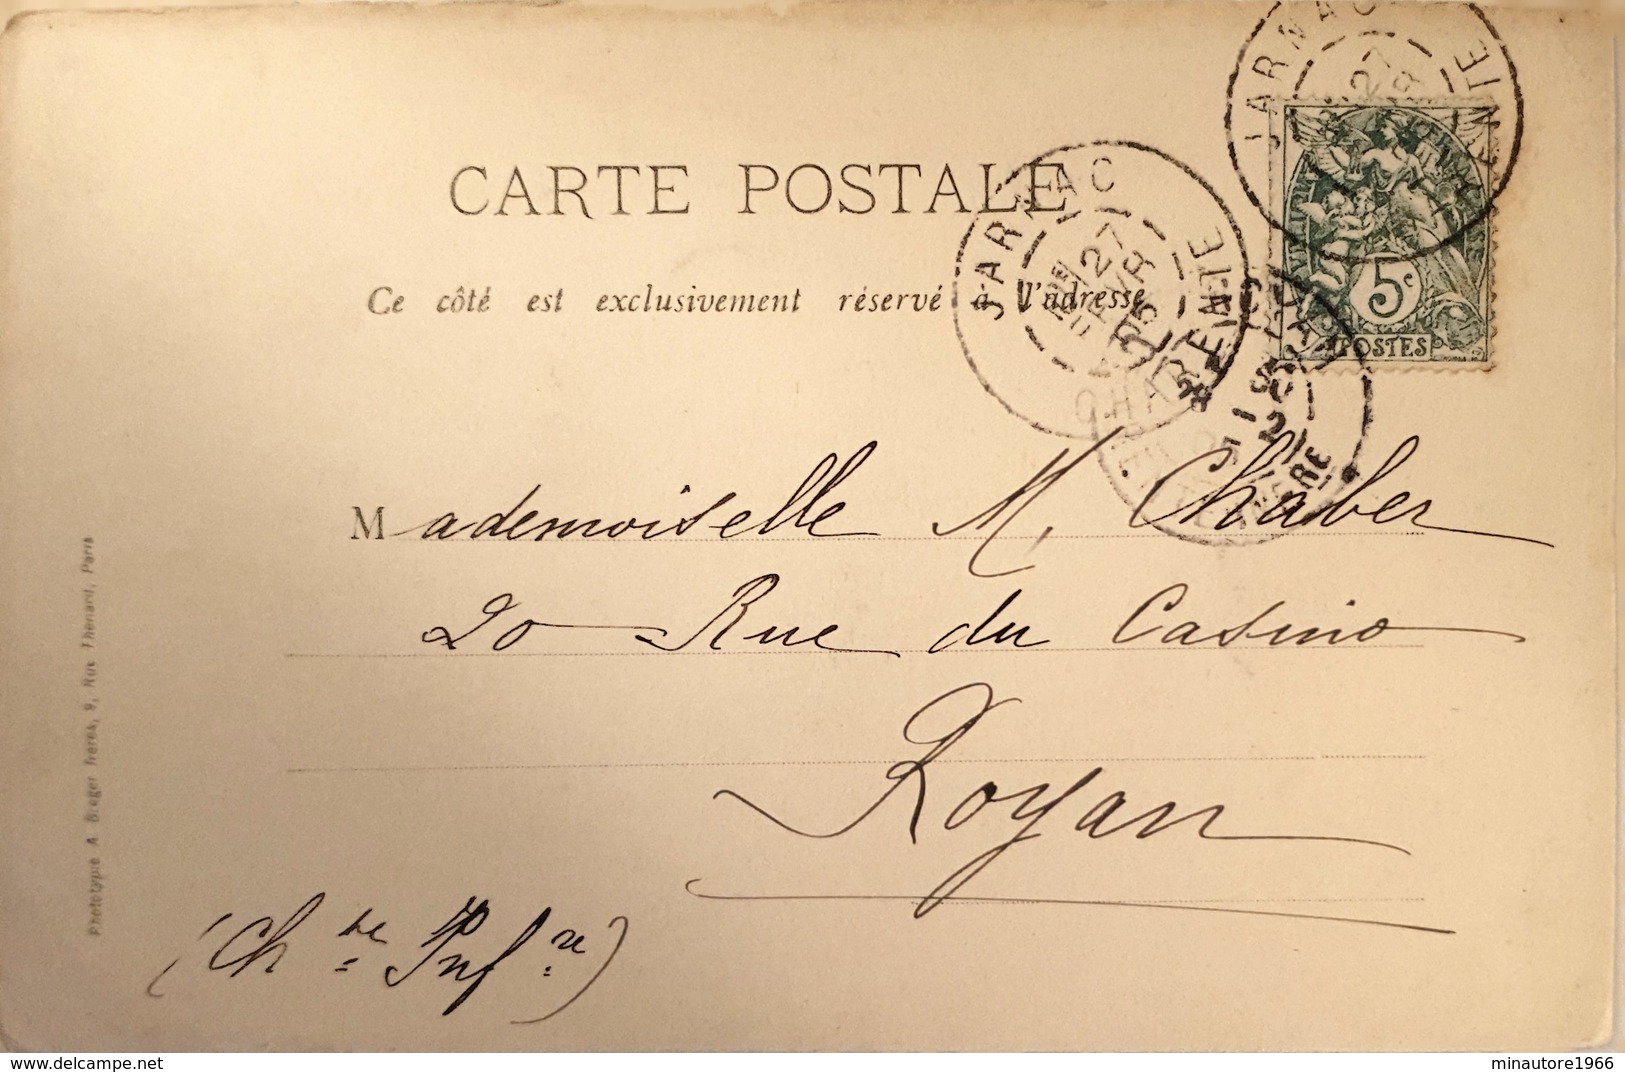 CARTE POSTALE
Ce côté est exclusivement réservé à l'adresse
JARNAC
27
FEVR
05
CHARENTE
JARNAC
27
5c
POSTES
Mademoiselle M. Chaber
20 Rue du Casino
Royan
(Ch te Inf re)
Phototypie A Breger frères, 9, Rue Thenard, Paris
www.delcampe.net
minautore1966